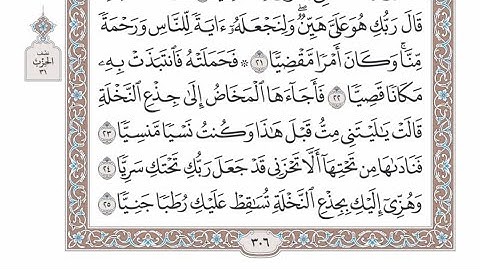 قَالَ رَبُّكِ هُوَ عَلَىَّ هَيِّنٌۭ ۖ وَلِنَجْعَلَهُۥٓ ءَايَةًۭ لِّلنَّاسِ وَرَحْمَةًۭ
مِّنَّا ۚ وَكَانَ أَمْرًۭا مَّقْضِيًّۭا ٢١ ۞ فَحَمَلَتْهُ فَٱنتَبَذَتْ بِهِۦ
مَكَانًۭا قَصِيًّۭا ٢٢ فَأَجَآءَهَا ٱلْمَخَاضُ إِلَىٰ جِذْعِ ٱلنَّخْلَةِ
قَالَتْ يَـٰلَيْتَنِى مِتُّ قَبْلَ هَـٰذَا وَكُنتُ نَسْيًۭا مَّنسِيًّۭا ٢٣
فَنَادَىٰهَا مِن تَحْتِهَآ أَلَّا تَحْزَنِى قَدْ جَعَلَ رَبُّكِ تَحْتَكِ سَرِيًّۭا ٢٤
وَهُزِّىٓ إِلَيْكِ بِجِذْعِ ٱلنَّخْلَةِ تُسَـٰقِطْ عَلَيْكِ رُطَبًۭا جَنِيًّۭا ٢٥
نصف
الحزب
٣١
٣٠٦